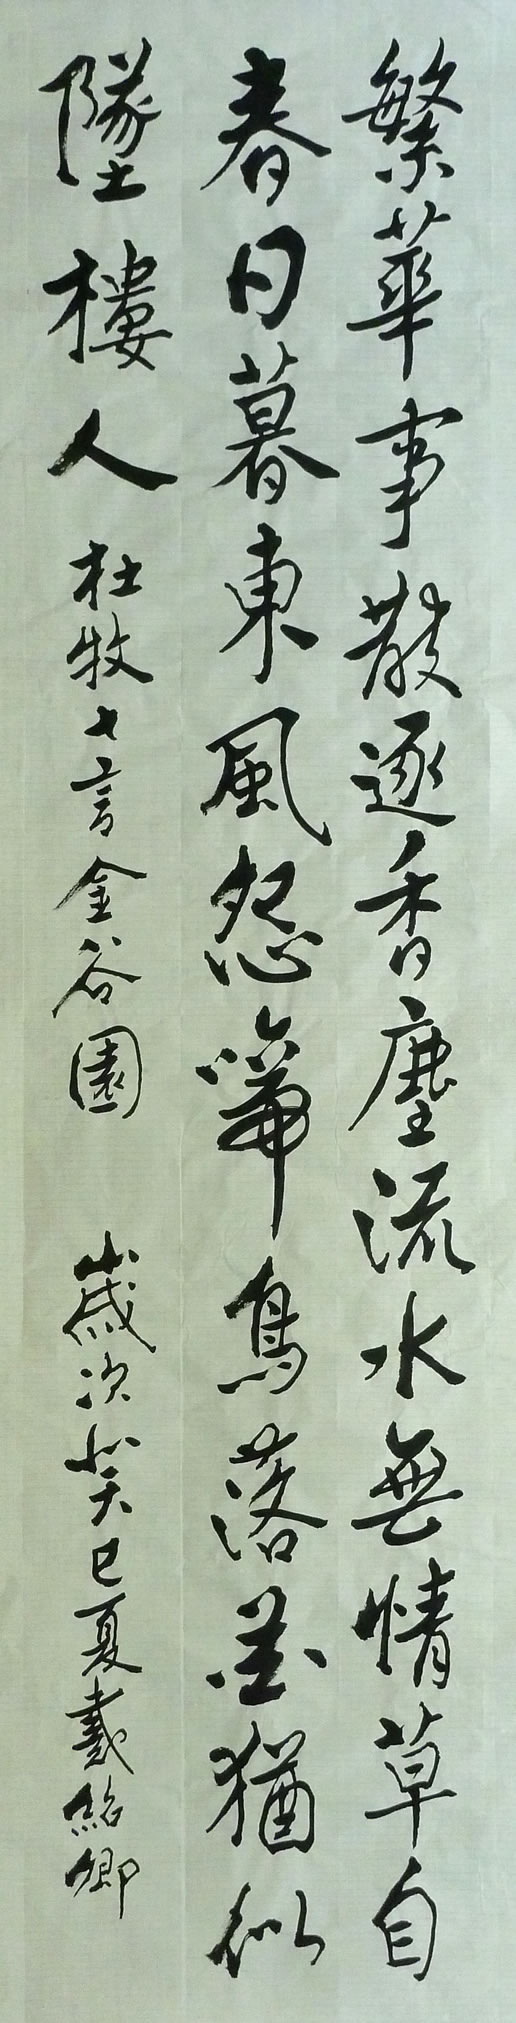 繁華事散逐香塵流水無情草自
春日暮東風怨啼鳥落花猶似
墜樓人 杜牧七言金谷園 歲次癸巳夏戴紹卿